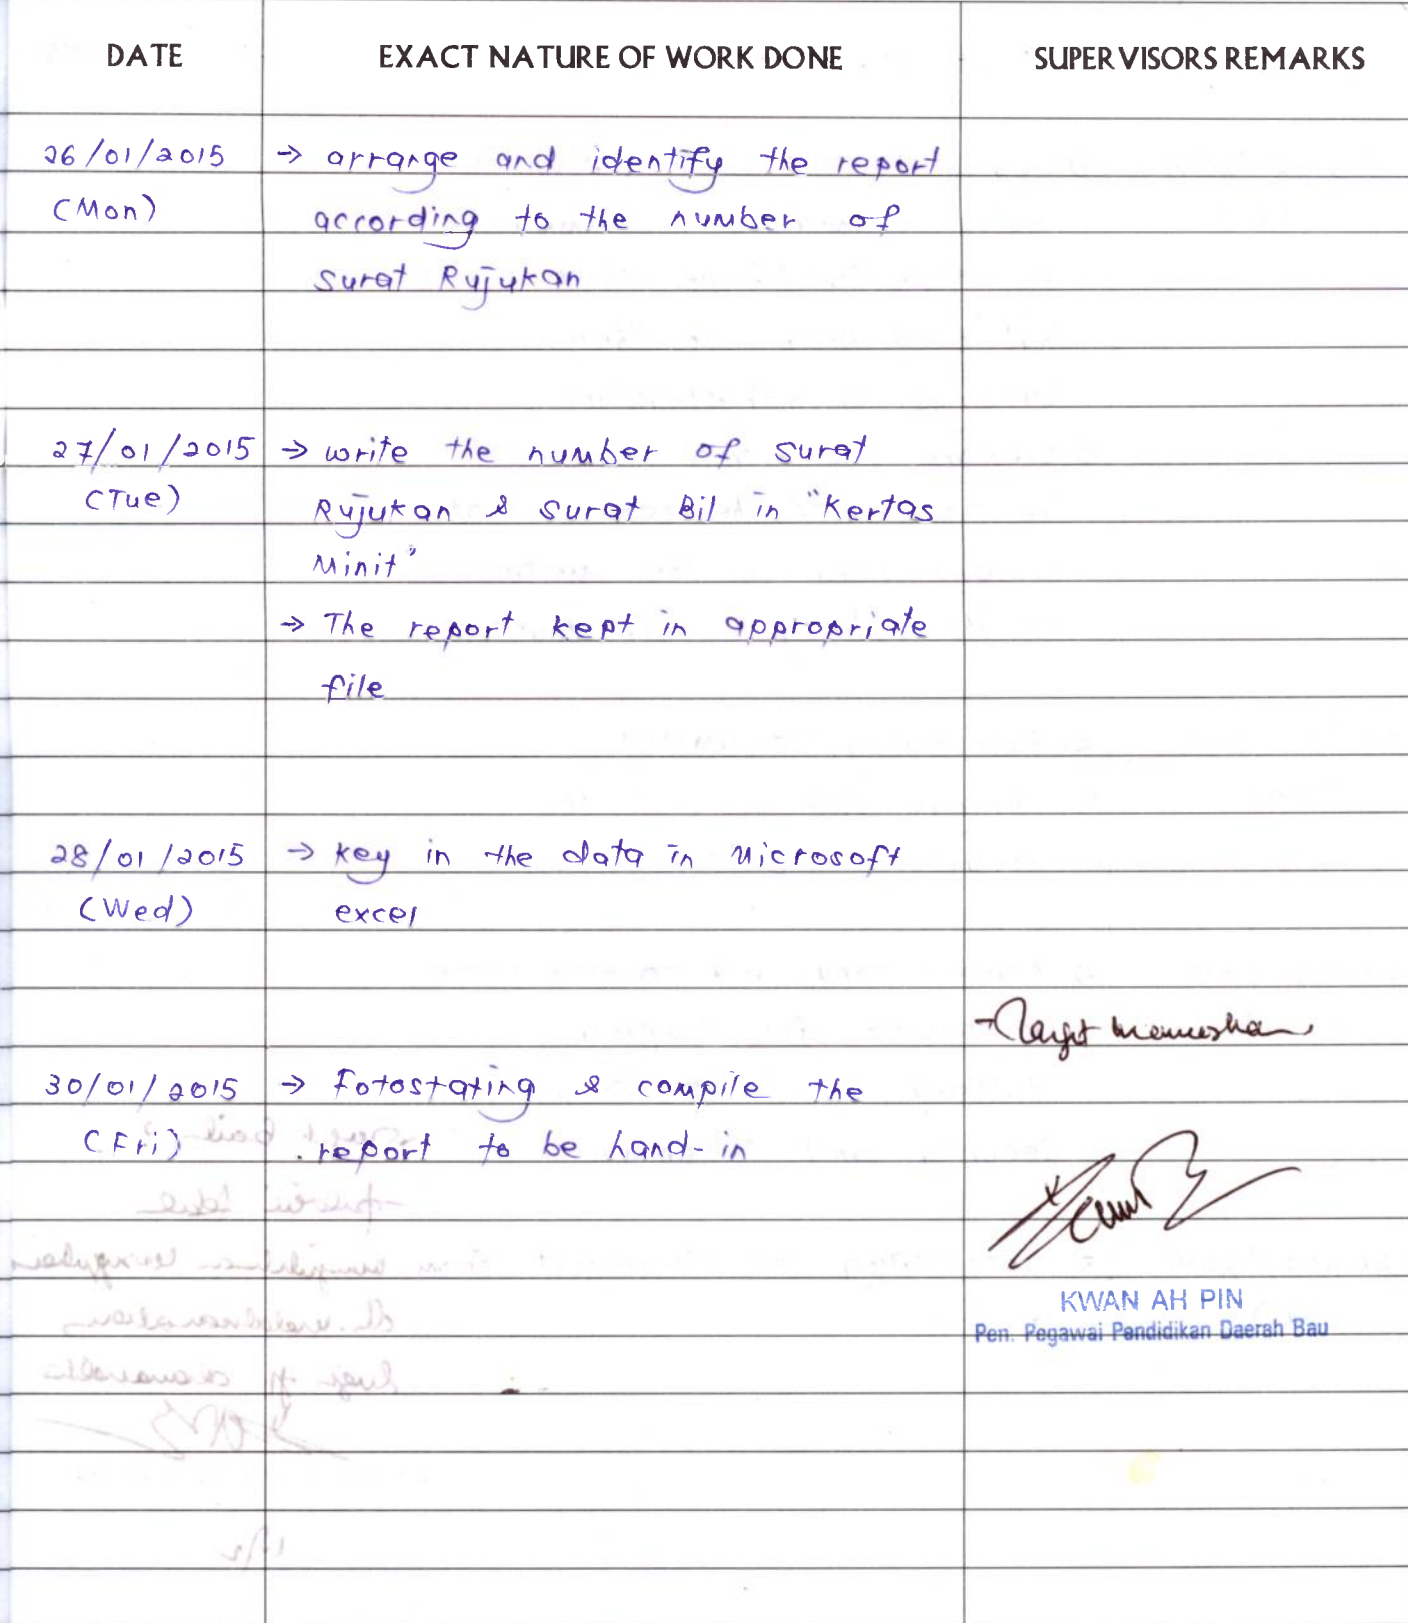 DATE EXACT NATURE OF WORK DONE SUPERVISORS REMARKS
26/01/2015 → arrange and identify the report
(Mon) according to the number of
Surat Rujukan
27/01/2015 → write the number of Surat
(Tue) Rujukan & Surat Bil in "Kertas
Minit"
→ The report kept in appropriate
file
28/01/2015 → key in the data in Microsoft
(Wed) excel
30/01/2015 → Fotostating & compile the
(Fri) report to be hand-in
KWAN AH PIN
Pen. Pegawai Pendidikan Daerah Bau